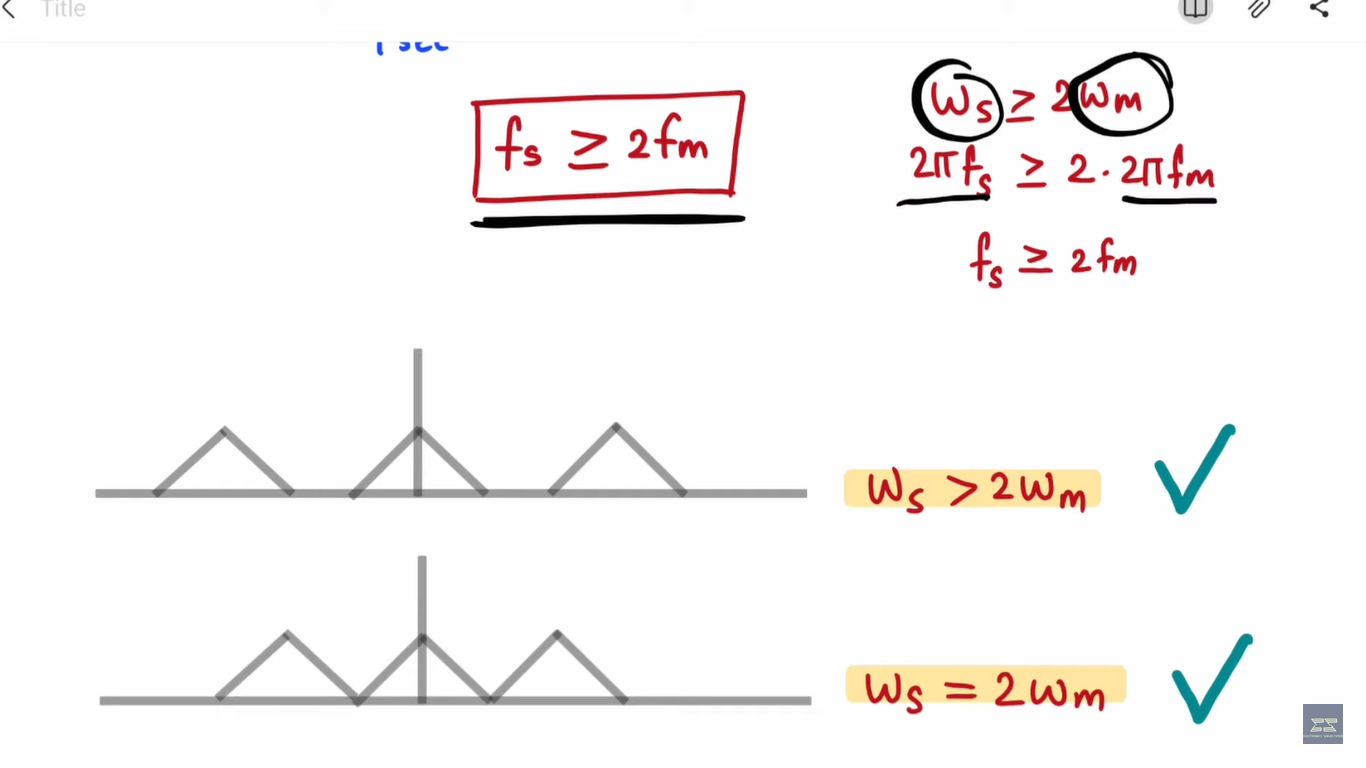 Title
1 sec
fs ≥ 2fm
ωs ≥ 2ωm
2πfs ≥ 2·2πfm
fs ≥ 2fm
ωs > 2ωm
ωs = 2ωm